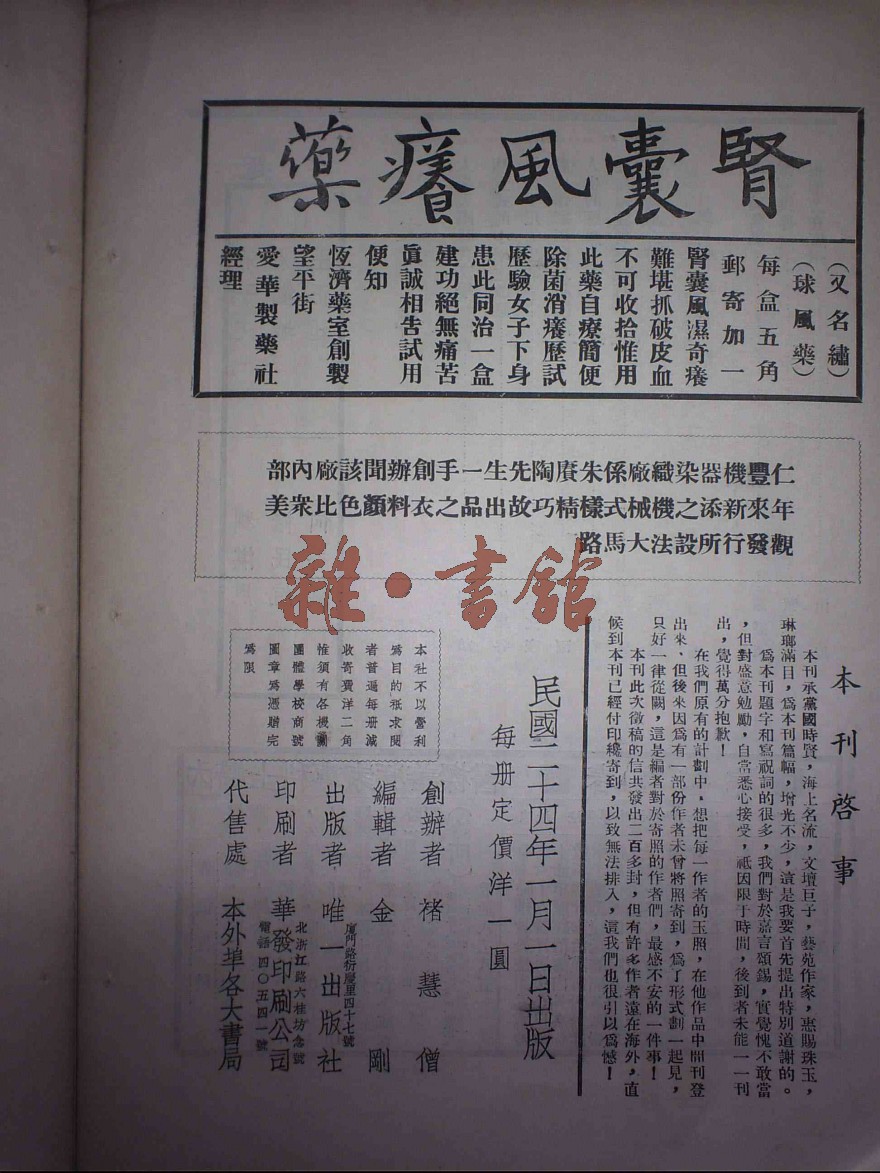 腎囊風癢藥
（又名繡
（球風藥）
每盒五角
郵寄加一
腎囊風濕奇癢
難堪抓破皮血
不可收拾惟用
此藥自療簡便
除菌消癢歷試
歷驗女子下身
患此同治一盒
建功絕無痛苦
眞誠相告試用
便知
恆濟藥室創製
望平街
愛華製藥社
經理
仁豐機器染織廠係朱賡陶先生一手創辦聞該廠內部
年來新添之機械式樣精巧故出品之衣料顏色比衆美
觀發行所設法大馬路
雜·書館
本刊啓事
本刊承黨國時賢，海上名流，文壇巨子，藝苑作家，惠賜珠玉，
琳瑯滿目，爲本刊篇幅，增光不少，這是我要首先提出特別道謝的。
爲本刊題字和寫祝詞的很多，我們對於嘉言頌錫，實覺愧不敢當
，但對盛意勉勵，自當悉心接受，祗因限于時間，後到者未能一一刊
出，覺得萬分抱歉！
在我們原有的計劃中，想把每一作者的玉照，在他作品中間刊登
出來，但後來因爲有一部份作者未曾將照寄到，爲了形式劃一起見，
只好一律從闕，這是編者對於寄照的作者們，最感不安的一件事！
本刊此次徵稿的信共發出二百多封，但有許多作者遠在海外，直
候到本刊已經付印纔寄到，以致無法排入，這我們也很引以爲憾！
民國二十四年一月一日出版
每册定價洋一圓
本社不以營利
爲目的祗求閱
者普遍每册減
收寄費洋二角
惟須有各機關
團體學校商號
圖章爲憑贈完
爲限
創辦者 褚慧僧
編輯者 金剛
廈門路衍慶里四十七號
出版者 唯一出版社
北浙江路六桂坊念號
印刷者 華發印刷公司
電話四〇五四一號
代售處 本外埠各大書局